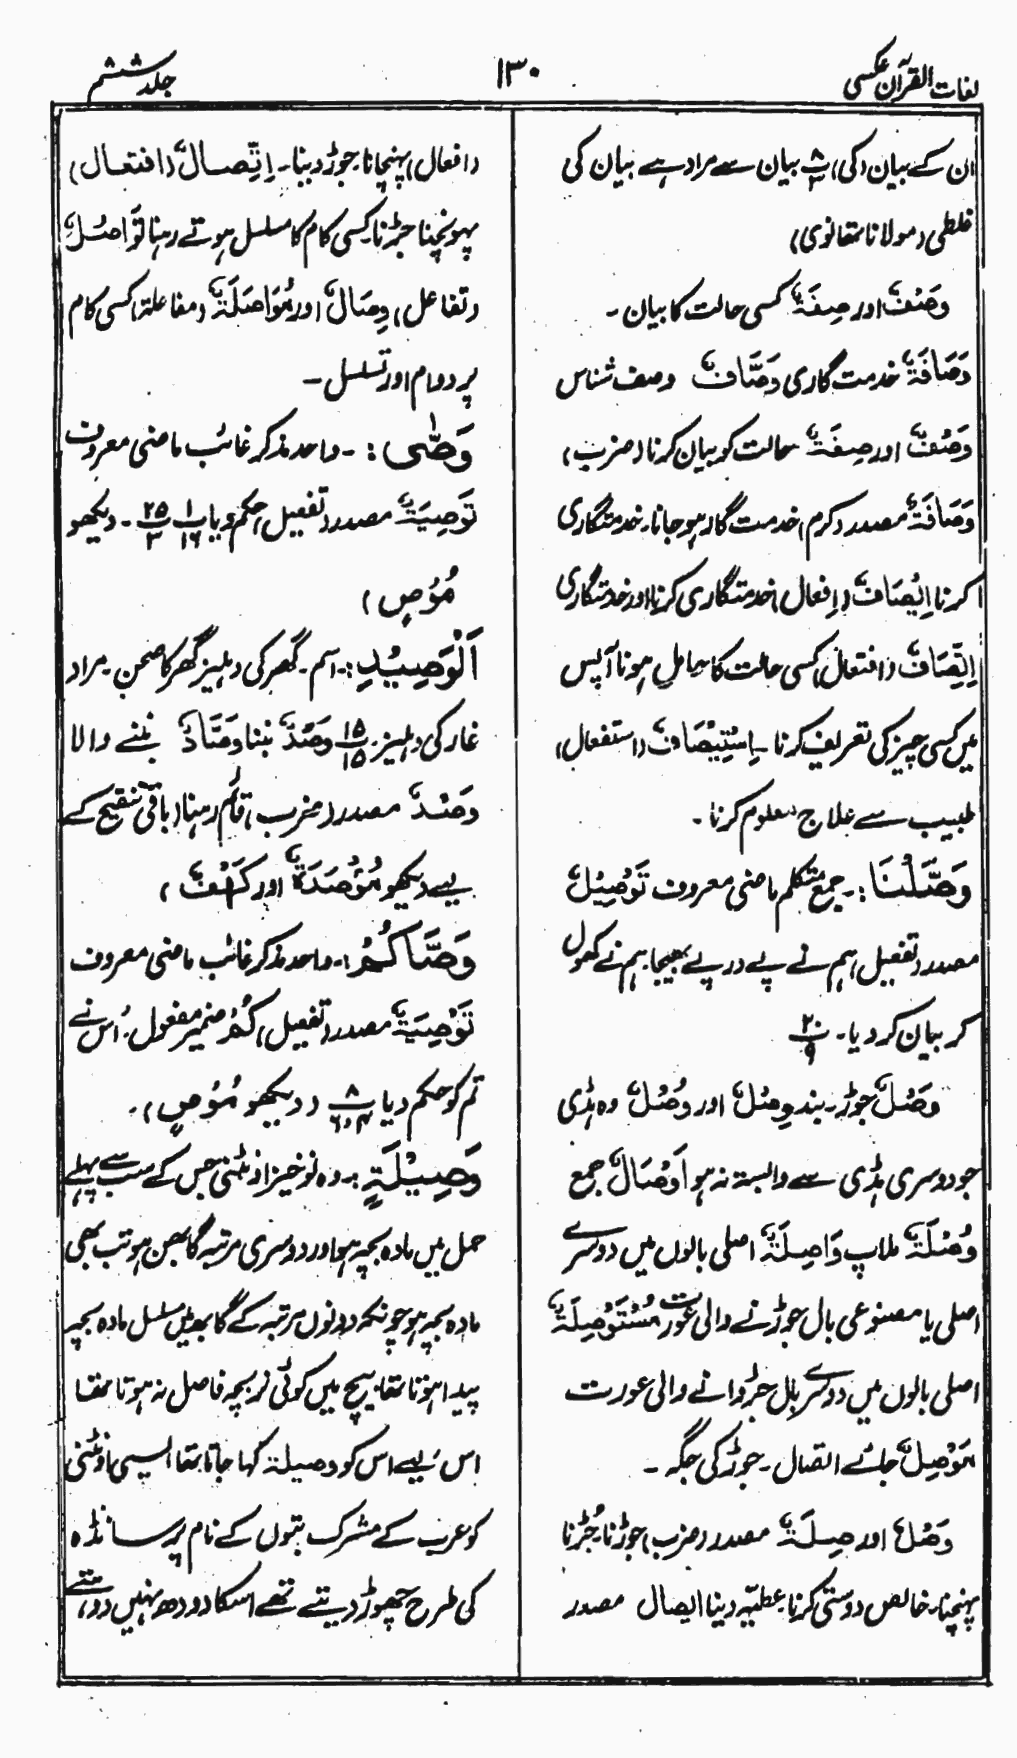 لغات القرآن عکسی
۱۳۰
جلد ششم
ان کے بیان (کی) پ ۸/۳ بیان سے مراد ہے بیان کی
غلطی (مولانا تھانوی)
وَصْفٌ اور صِفَةٌ کسی حالت کا بیان ۔
وَصَافَةٌ خدمت گاری وَصَّافٌ وصف شناس
وَصْفٌ اور صِفَةٌ حالت کو بیان کرنا (ضرب)
وَصَافَةٌ مصدر (کرم) خدمت گار ہو جانا۔ خدمتگاری
کرنا اِیْصَافٌ (اِفعال) خدمتگاری کرنا اور خدمتگاری
اِتِّصَافٌ (افتعال) کسی حالت کا حامل ہونا آپس
میں کسی چیز کی تعریف کرنا ۔ اِسْتِیْصَافٌ (استفعال)
طبیب سے علاج معلوم کرنا ۔
وَصَّلْنَا :۔ جمع متکلم ماضی معروف تَوْصِیْلٌ
مصدر (تفعیل) ہم نے پے در پے بھیجا۔ ہم نے کھول
کر بیان کر دیا ۔ پ ۲۰/۹
وَصْلٌ جوڑ۔ بند وِصْلٌ اور وُصْلٌ وہ ہڈی
جو دوسری ہڈی سے وابستہ نہ ہو اَوْصَالٌ جمع
وُصْلَةٌ ملاپ وَاصِلَةٌ اصلی بالوں میں دوسرے
اصلی یا مصنوعی بال جوڑنے والی عورت مُسْتَوْصِلَةٌ
اصلی بالوں میں دوسرے بال جڑوانے والی عورت
مَوْصِلٌ جائے اتصال ۔ جوڑ کی جگہ ۔
وَصْلٌ اور صِلَةٌ مصدر (ضرب) جوڑنا۔ جُڑنا
پہنچنا۔ خالص دوستی کرنا۔ عطیّہ دینا ایصال مصدر
(افعال) پہنچانا۔ جوڑ دینا۔ اِتِّصَالٌ (افتعال)
پہونچنا جڑنا۔ کسی کام کا مسلسل ہوتے رہنا تَوَاصُلٌ
(تفاعل) وِصَالٌ اور مُوَاصَلَةٌ (مفاعلۃ) کسی کام
پر دوام اور تسلسل ۔
وَصّٰی :۔ واحد مذکر غائب ماضی معروف
تَوْصِیَةٌ مصدر (تفعیل) حکم دیا پ ۱/۱۶ پ ۲۵/۳ ۔ دیکھو
مُؤْصٍ )
اَلْوَصِیْدِ :۔ اسم ۔ گھر کی دہلیز گھر کا صحن ۔ مراد
غار کی دہلیز۔ پ ۱۵/۱۵ وَصْدٌ بننا وَصَّادٌ بُننے والا
وَصْدٌ مصدر (ضرب) قائم رہنا (باقی تنقیح کے
لیے دیکھو مُؤْصَدَةٌ اور کَهْفٌ )
وَصَّاکُمْ :۔ واحد مذکر غائب ماضی معروف
تَوْصِیَةٌ مصدر (تفعیل) کُمْ ضمیر مفعول ۔ اُس نے
تم کو حکم دیا پ ۸/۶،۴ (دیکھو مُؤْصٍ ) ۔
وَصِیْلَةٍ :۔ وہ نوخیز اونٹنی جس کے سب سے پہلے
حمل میں مادہ بچہ ہو اور دوسری مرتبہ گابھن ہو تب بھی
مادہ بچہ ہو چونکہ دونوں مرتبہ کے گابھ میں مسلسل مادہ بچہ
پیدا ہوتا تھا۔ بیچ میں کوئی نر بچہ فاصل نہ ہوتا تھا
اس لیے اس کو وصیلۃ کہا جاتا تھا ایسی اونٹنی
کو عرب کے مشرک بتوں کے نام پر سانڈہ
کی طرح چھوڑ دیتے تھے اسکا دودھ نہیں دوہتے